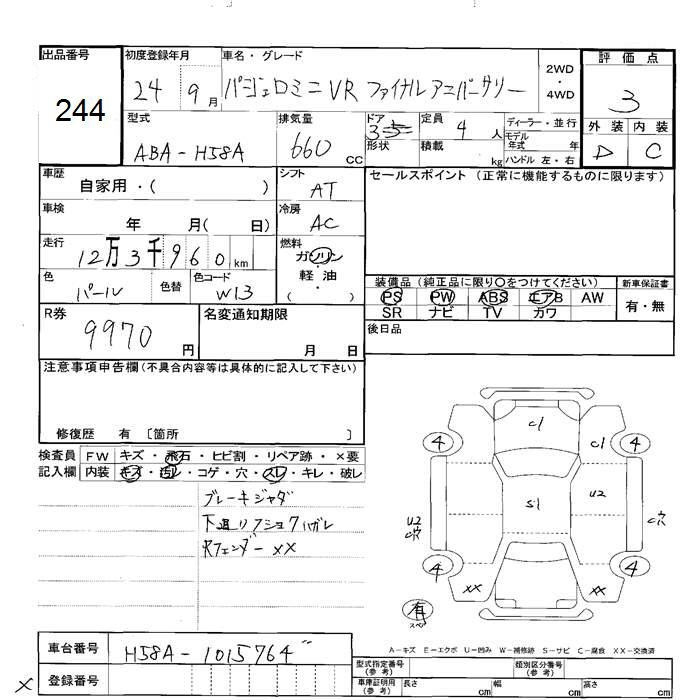 出品番号
244
初度登録年月
24 9月
車名・グレード
パジェロミニVR ファイナルアニバーサリー
2WD
・
4WD
評価点
3
外装 内装
D C
型式
ABA-H58A
排気量
660 CC
ドア
3 5
形状
定員
4 人
積載
kg
ディーラー・並行
モデル
年式 年
ハンドル 左・右
車歴
自家用・( )
シフト
AT
セールスポイント (正常に機能するものに限ります)
車検
年 月( 日)
冷房
AC
走行
12万3千960km
燃料
ガソリン
・
軽油
( )
色
パール
色替
色コード
W13
装備品 (純正品に限り○をつけてください)
PS PW ABS エアB AW
SR ナビ TV カワ
新車保証書
有・無
R券
9970円
名変通知期限
月 日
後日品
注意事項申告欄(不具合内容等は具体的に記入して下さい)
修復歴 有 〔箇所 〕
検査員
記入欄
FW キズ・飛石・ヒビ割・リペア跡・×要
内装 キズ・汚レ・コゲ・穴・スレ・キレ・破レ
ブレーキジャダ
下廻リフショクハガレ
XX
C1
4 C1 4
U2 S1 U2
穴
4 4
XX XX
有
スペア
A-キズ E-エクボ U-凹み W-補修跡 S-サビ C-腐食 XX-交換済
車台番号
H58A-1015764
登録番号
×
型式指定番号
(参考)
類別区分番号
(参考)
車庫証明用
(参考)
長さ cm
幅 cm
高さ cm